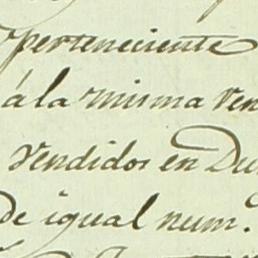 perteneciente
á la misma Ven
Vendidos en Du
de igual num.